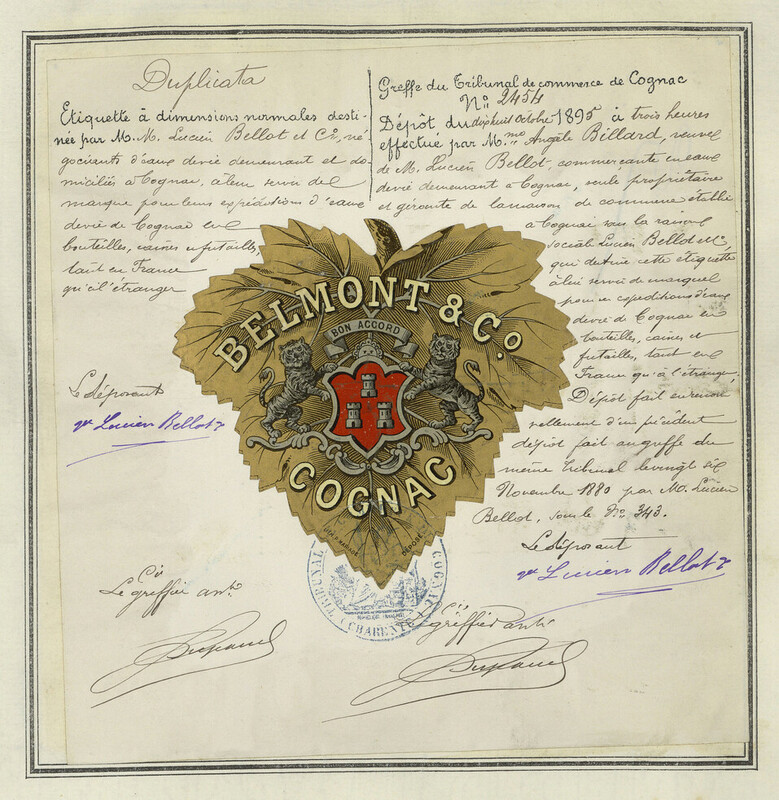 Duplicata
Etiquette à dimensions normales desti-
née par M.M. Lucien Bellot et Cie, né-
gociants d'eaux devie demeurant et do-
miciliés à Cognac, à leur servir de
marque pour leurs expéditions d'eaux
devie de Cognac en
bouteilles, caisses et futailles,
tant en France
qu'à l'étranger
Le déposant
Vve Lucien Bellot
Greffe du Tribunal de commerce de Cognac
No: 2454
Dépôt du dix huit Octobre 1895 à trois heures
effectué par Mme Angèle Billard, veuve
de M. Lucien Bellot, commerçante en eaux
devie demeurant à Cognac, seule propriétaire
et gérante de la maison de commerce établie
à Cognac sous la raison
sociale Lucien Bellot
qui destine cette étiquette
à lui servir de marque
pour ses expéditions d'eaux
devie de Cognac en
bouteilles, caisses et
futailles, tant en
France qu'à l'étranger,
Dépôt fait en renou
vellement d'un précédent
dépôt fait au greffe du
même Tribunal le vingt six
Novembre 1880 par M. Lucien
Bellot, sous le No 343.
Le déposant
Vve Lucien Bellot
BELMONT & Co
BON ACCORD
COGNAC
DÉPOSÉ
TRIBUNAL
COGNAC
(CHARENTE)
Le greffier
Le greffier